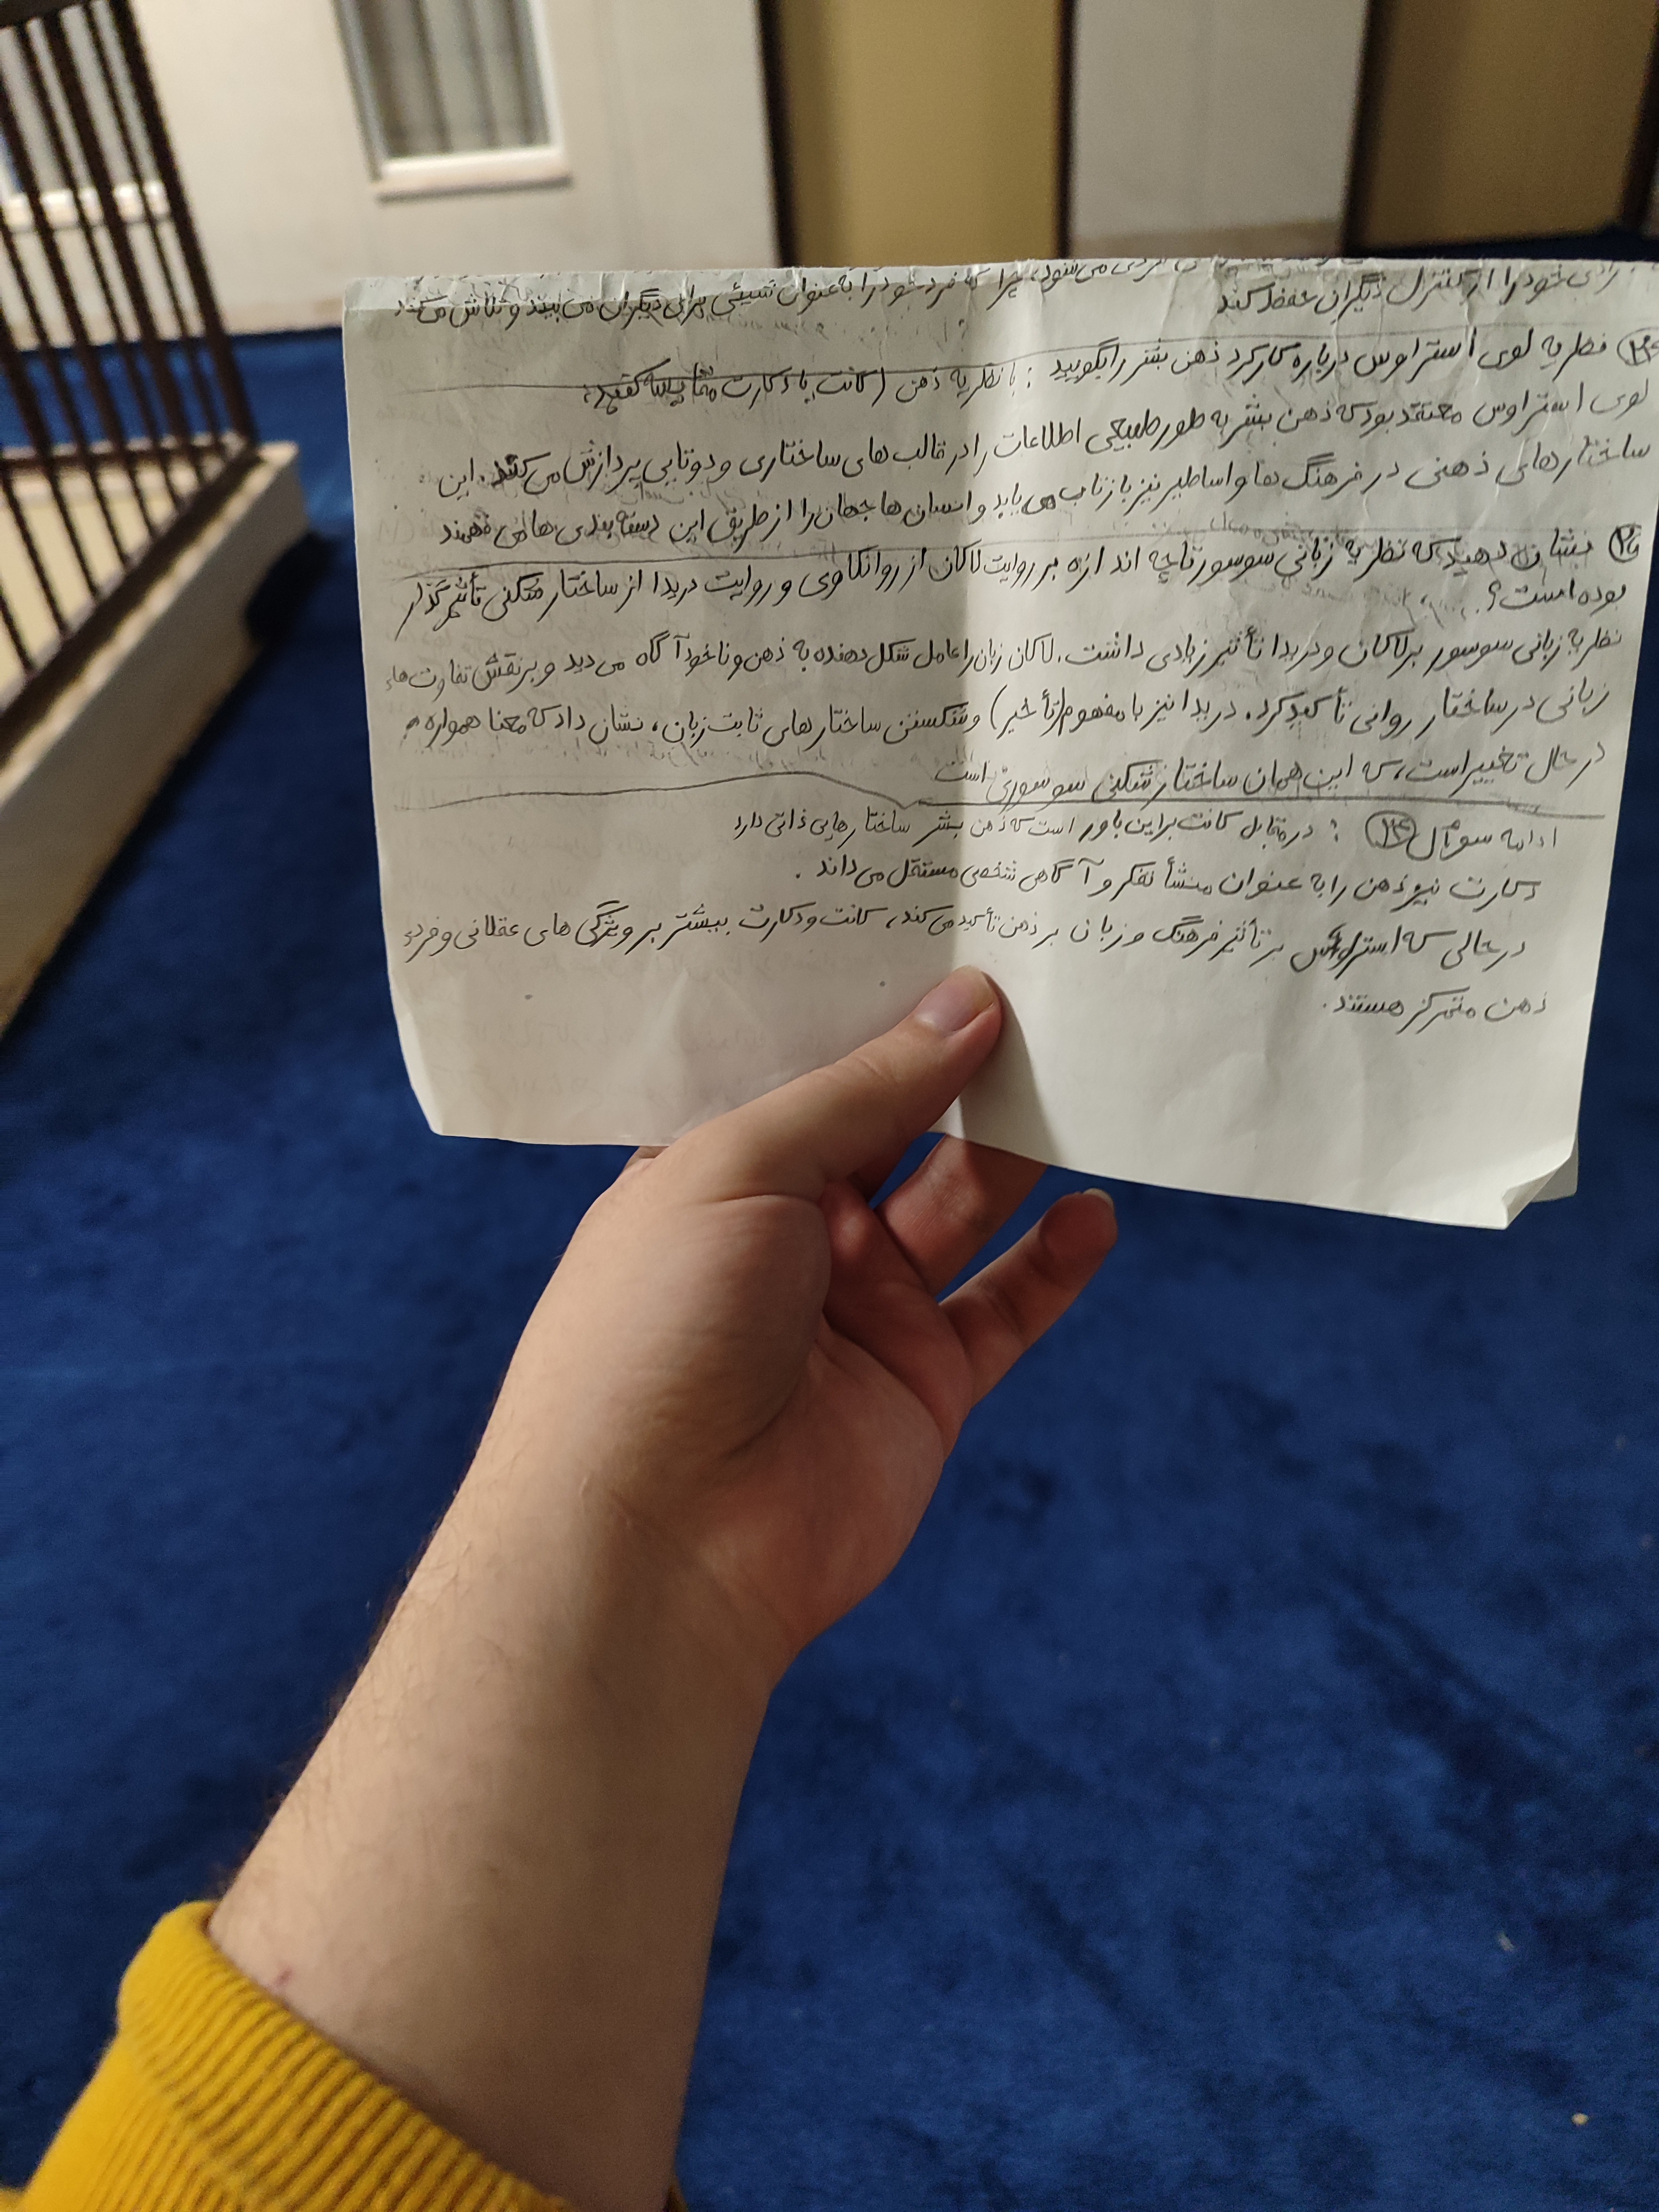 می‌شود، چرا که فرد خود را به عنوان شیئی برای دیگران می بیند و تلاش می کند
خود را از کنترل دیگران حفظ کند
۲۴ نظریه لوی استراوس درباره کارکرد ذهن بشر را بگویید : با نظریه ذهن (کانت با دکارت مقایسه کنید:
لوی استراوس معتقد بود که ذهن بشر به طور طبیعی اطلاعات را در قالب های ساختاری و دوتایی پردازش می کند. این
ساختارهای ذهنی در فرهنگ ها و اساطیر نیز بازتاب می یابد و انسان ها جهان را از طریق این دسته بندی ها می فهمند
نشان دهید که نظریه زبانی سوسور تا چه اندازه بر روایت لاکان از روانکاوی و روایت دریدا از ساختار شکنی تأثیرگذار
بوده است؟
نظریه زبانی سوسور بر لاکان و دریدا تأثیر زیادی داشت. لاکان زبان را عامل شکل دهنده به ذهن و ناخودآگاه می دید و بر نقش تفاوت های
زبانی در ساختار روانی تأکید کرد. دریدا نیز با مفهوم (تأخیر) و شکستن ساختار های ثابت زبان، نشان داد که معنا همواره
در حال تغییر است، که این همان ساختارشکنی سوسوری است
ادامه سوال ۲۴ : در مقابل کانت بر این باور است که ذهن بشر ساختارهایی ذاتی دارد
دکارت نیز ذهن را به عنوان منشأ تفکر و آگاهی شخصی مستقل می داند .
در حالی که استراوس بر تأثیر فرهنگ و زبان بر ذهن تأکید می کند، کانت و دکارت بیشتر بر ویژگی های عقلانی و فردی
ذهن متمرکز هستند.